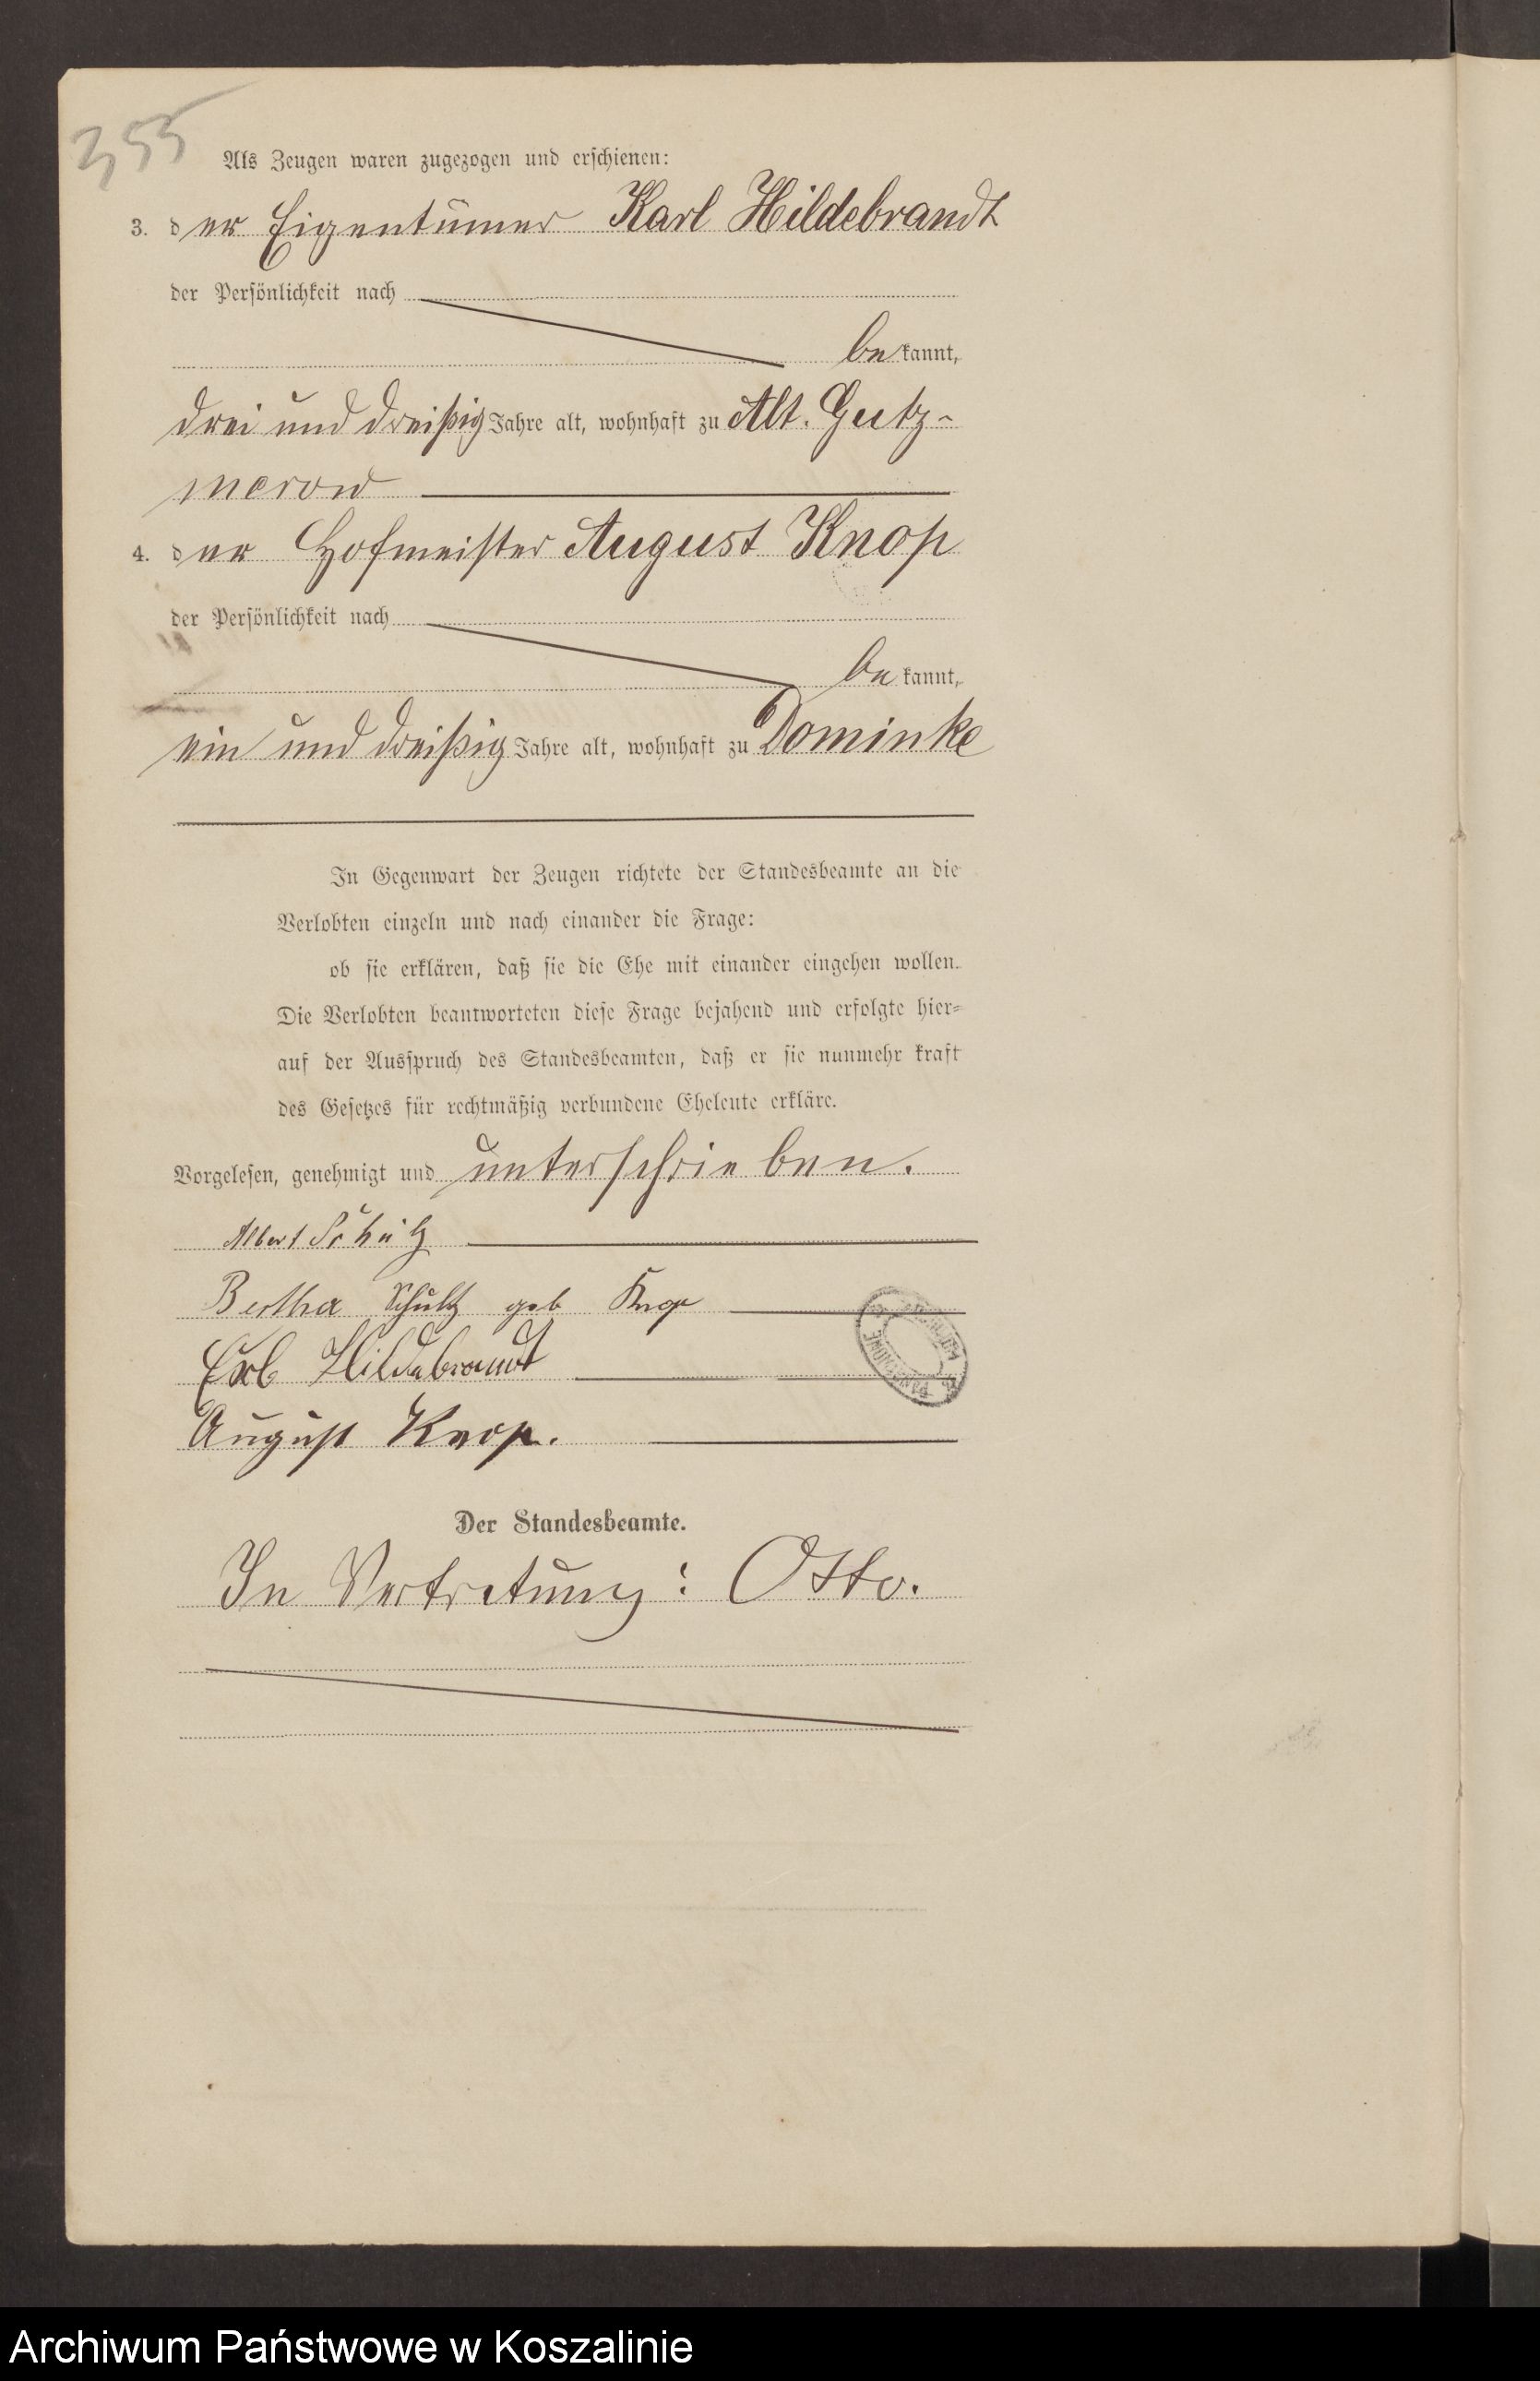 355
Als Zeugen waren zugezogen und erschienen:
3. der Eigentümer Karl Hildebrandt
der Persönlichkeit nach
bekannt,
drei und dreißig Jahre alt, wohnhaft zu Alt. Gutz-
merow
4. der Hofmeister August Knop
der Persönlichkeit nach
bekannt,
ein und dreißig Jahre alt, wohnhaft zu Dominke
In Gegenwart der Zeugen richtete der Standesbeamte an die
Verlobten einzeln und nach einander die Frage:
ob sie erklären, daß sie die Ehe mit einander eingehen wollen.
Die Verlobten beantworteten diese Frage bejahend und erfolgte hier-
auf der Ausspruch des Standesbeamten, daß er sie nunmehr kraft
des Gesetzes für rechtmäßig verbundene Eheleute erkläre.
Vorgelesen, genehmigt und unterschrieben.
Albert Schulz
Bertha Schultz geb Knop
Hildebrandt
August Knop.
Der Standesbeamte.
In Vertretung: Otto.
Archiwum Państwowe w Koszalinie